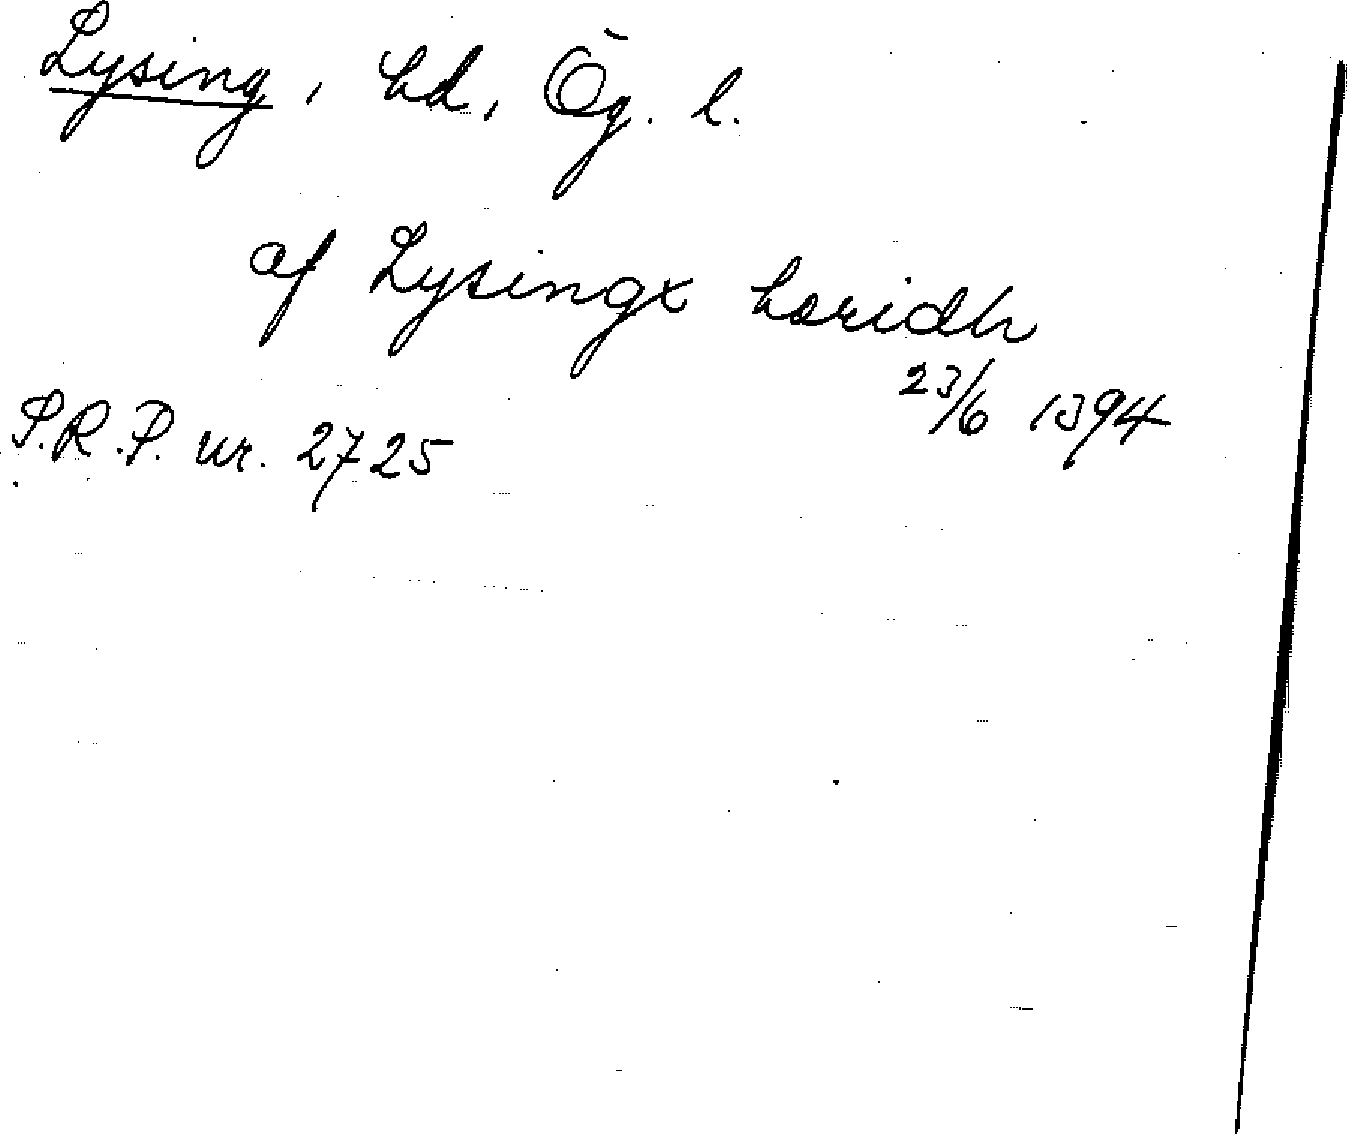 Lysing, hd, Ög. l.
af Lysingx hæridh
23/6 1394
S.R.P. nr. 2725